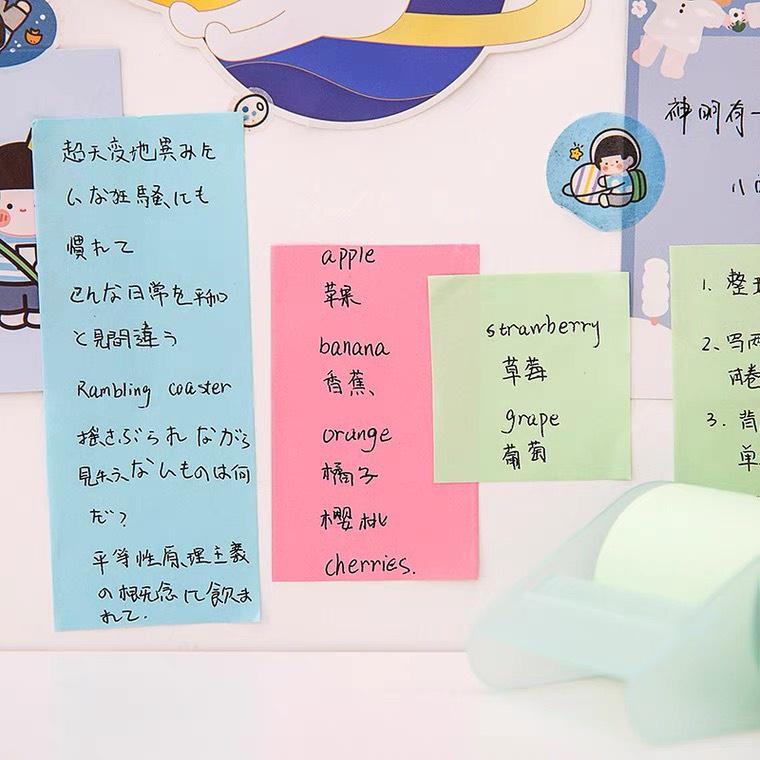 超天変地異みた
いな狂騒にも
慣れて
こんな日常を平和
と見間違う
Rambling coaster
揺さぶられながら
見失えないものは何
だ?
平等性原理主義
の概念に飲ま
れて.
apple
苹果
banana
香蕉
orange
橘子
樱桃
cherries.
strawberry
草莓
grape
葡萄
神明有一
1. 整
2、写两
卷
3. 背
单